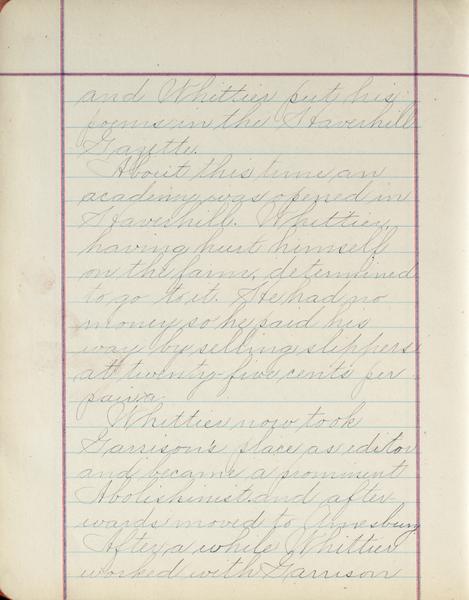 and Whittier put his
poems in the Haverhill
Gazette.
About this time an
academy was opened in
Haverhill. Whittier,
having hurt himself
on the farm, determined
to go to it. He had no
money, so he paid his
way by selling slippers
at twenty-five cents per
pair.
Whittier now took
Garrison's place as editor
and became a prominent
Abolishinist. and after-
wards moved to Amesbury
After a while Whittier
worked with Garrison